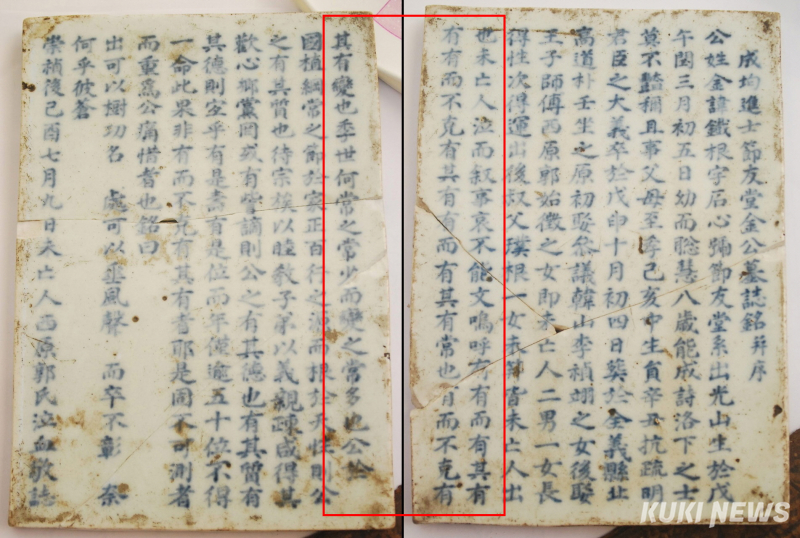 成均進士節友堂金公墓誌銘并序
公姓金諱鐵根字石心號節友堂系出光山生於戊
午閏三月初五日幼而聡慧八歲能成詩洛下之士
莫不豔稱且事父母至孝己亥中生員辛丑抗疏明
君臣之大義卒於戊申十月初四日葬於全義縣北
高道朴壬坐之原初娶叅議韓山李禎翊之女後娶
王子師傅西原郭始徵之女即未亡人二男一女長
得性次得運出後叔父璞根一女未笄皆未亡人出
也未亡人泣而叙事哀不能文嗚呼有而有其有
有有而不克有其有有而有其有常也有而不克有
其有變也季世何常之常少而變之常多也公於
國植綱常之節於家正百行之源而根於天性則公
之有其質也待宗族以睦敎子弟以義親踈咸得其
歡心鄕黨罔或有訾謫則公之有其德也有其質有
其德則宜乎有是壽有是位而年僅逾五十位不得
一命此果非有而不克有其有者耶是固不可測者
而重爲公痛惜者也銘曰
出可以樹功名 處可以垂風聲 而卒不彰 奈
何乎彼蒼
崇禎後己酉七月九日未亡人西原郭氏泣血敬誌
KUKI NEWS